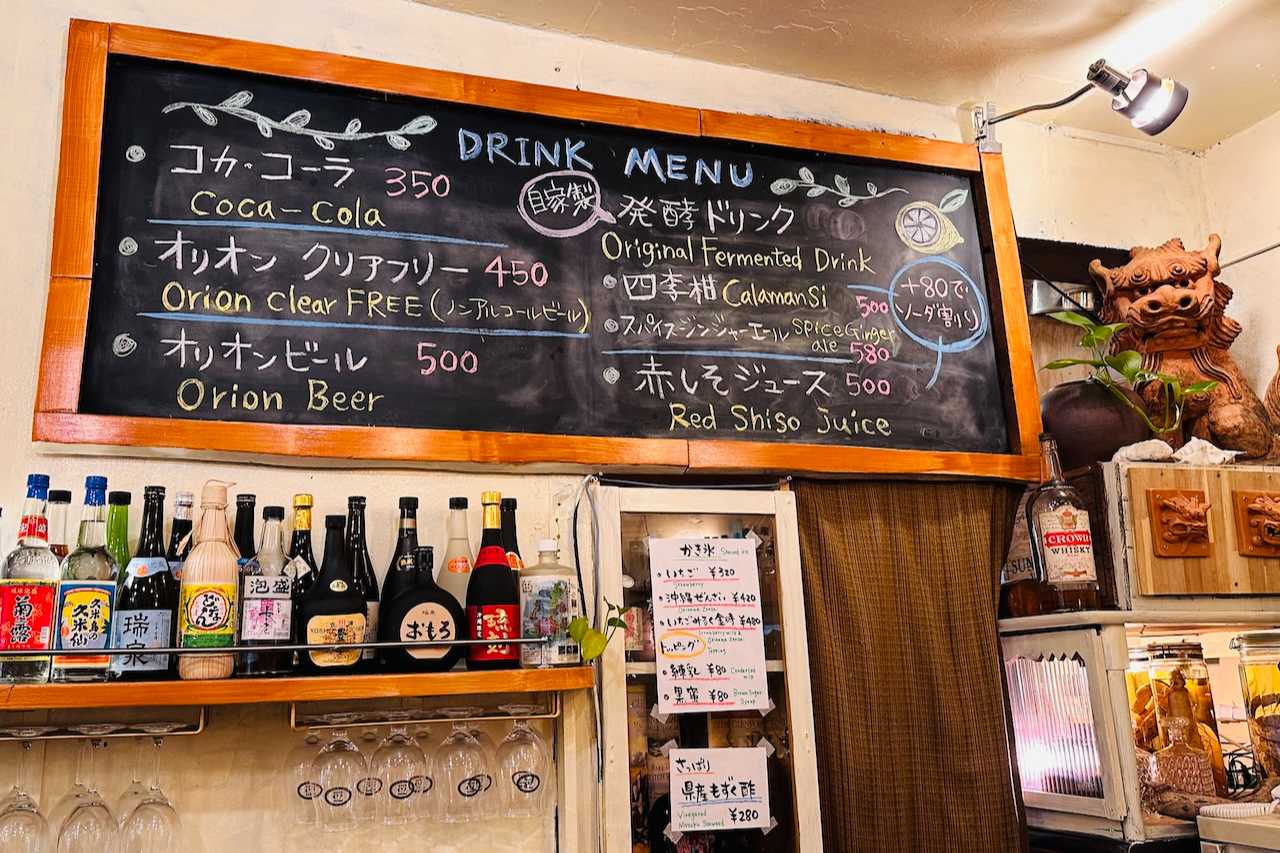 DRINK MENU
コカ・コーラ 350
Coca-Cola
オリオン クリアフリー 450
Orion clear FREE (ノンアルコールビール)
オリオンビール 500
Orion Beer
自家製
発酵ドリンク
Original Fermented Drink
四季柑 Calamansi 500
スパイスジンジャーエール Spice Ginger
ale 580
赤しそジュース 500
Red Shiso Juice
+80で
ソーダ割り
かき氷 Shaved ice
いちご ¥320
Strawberry
沖縄ぜんざい ¥420
Okinawa Zenzai
いちごみるく金時 ¥480
Strawberry milk &
Okinawa Zenzai
トッピング
Topping
練乳 ¥80 Condensed
milk
黒蜜 ¥80 Brown Sugar
Syrup
さっぱり
県産もずく酢
Vinegared
Mozuku Seaweed ¥280
菊之露
久米島の
久米仙
瑞泉
どなん
泡盛
おもろ
CROWN
WHISKY